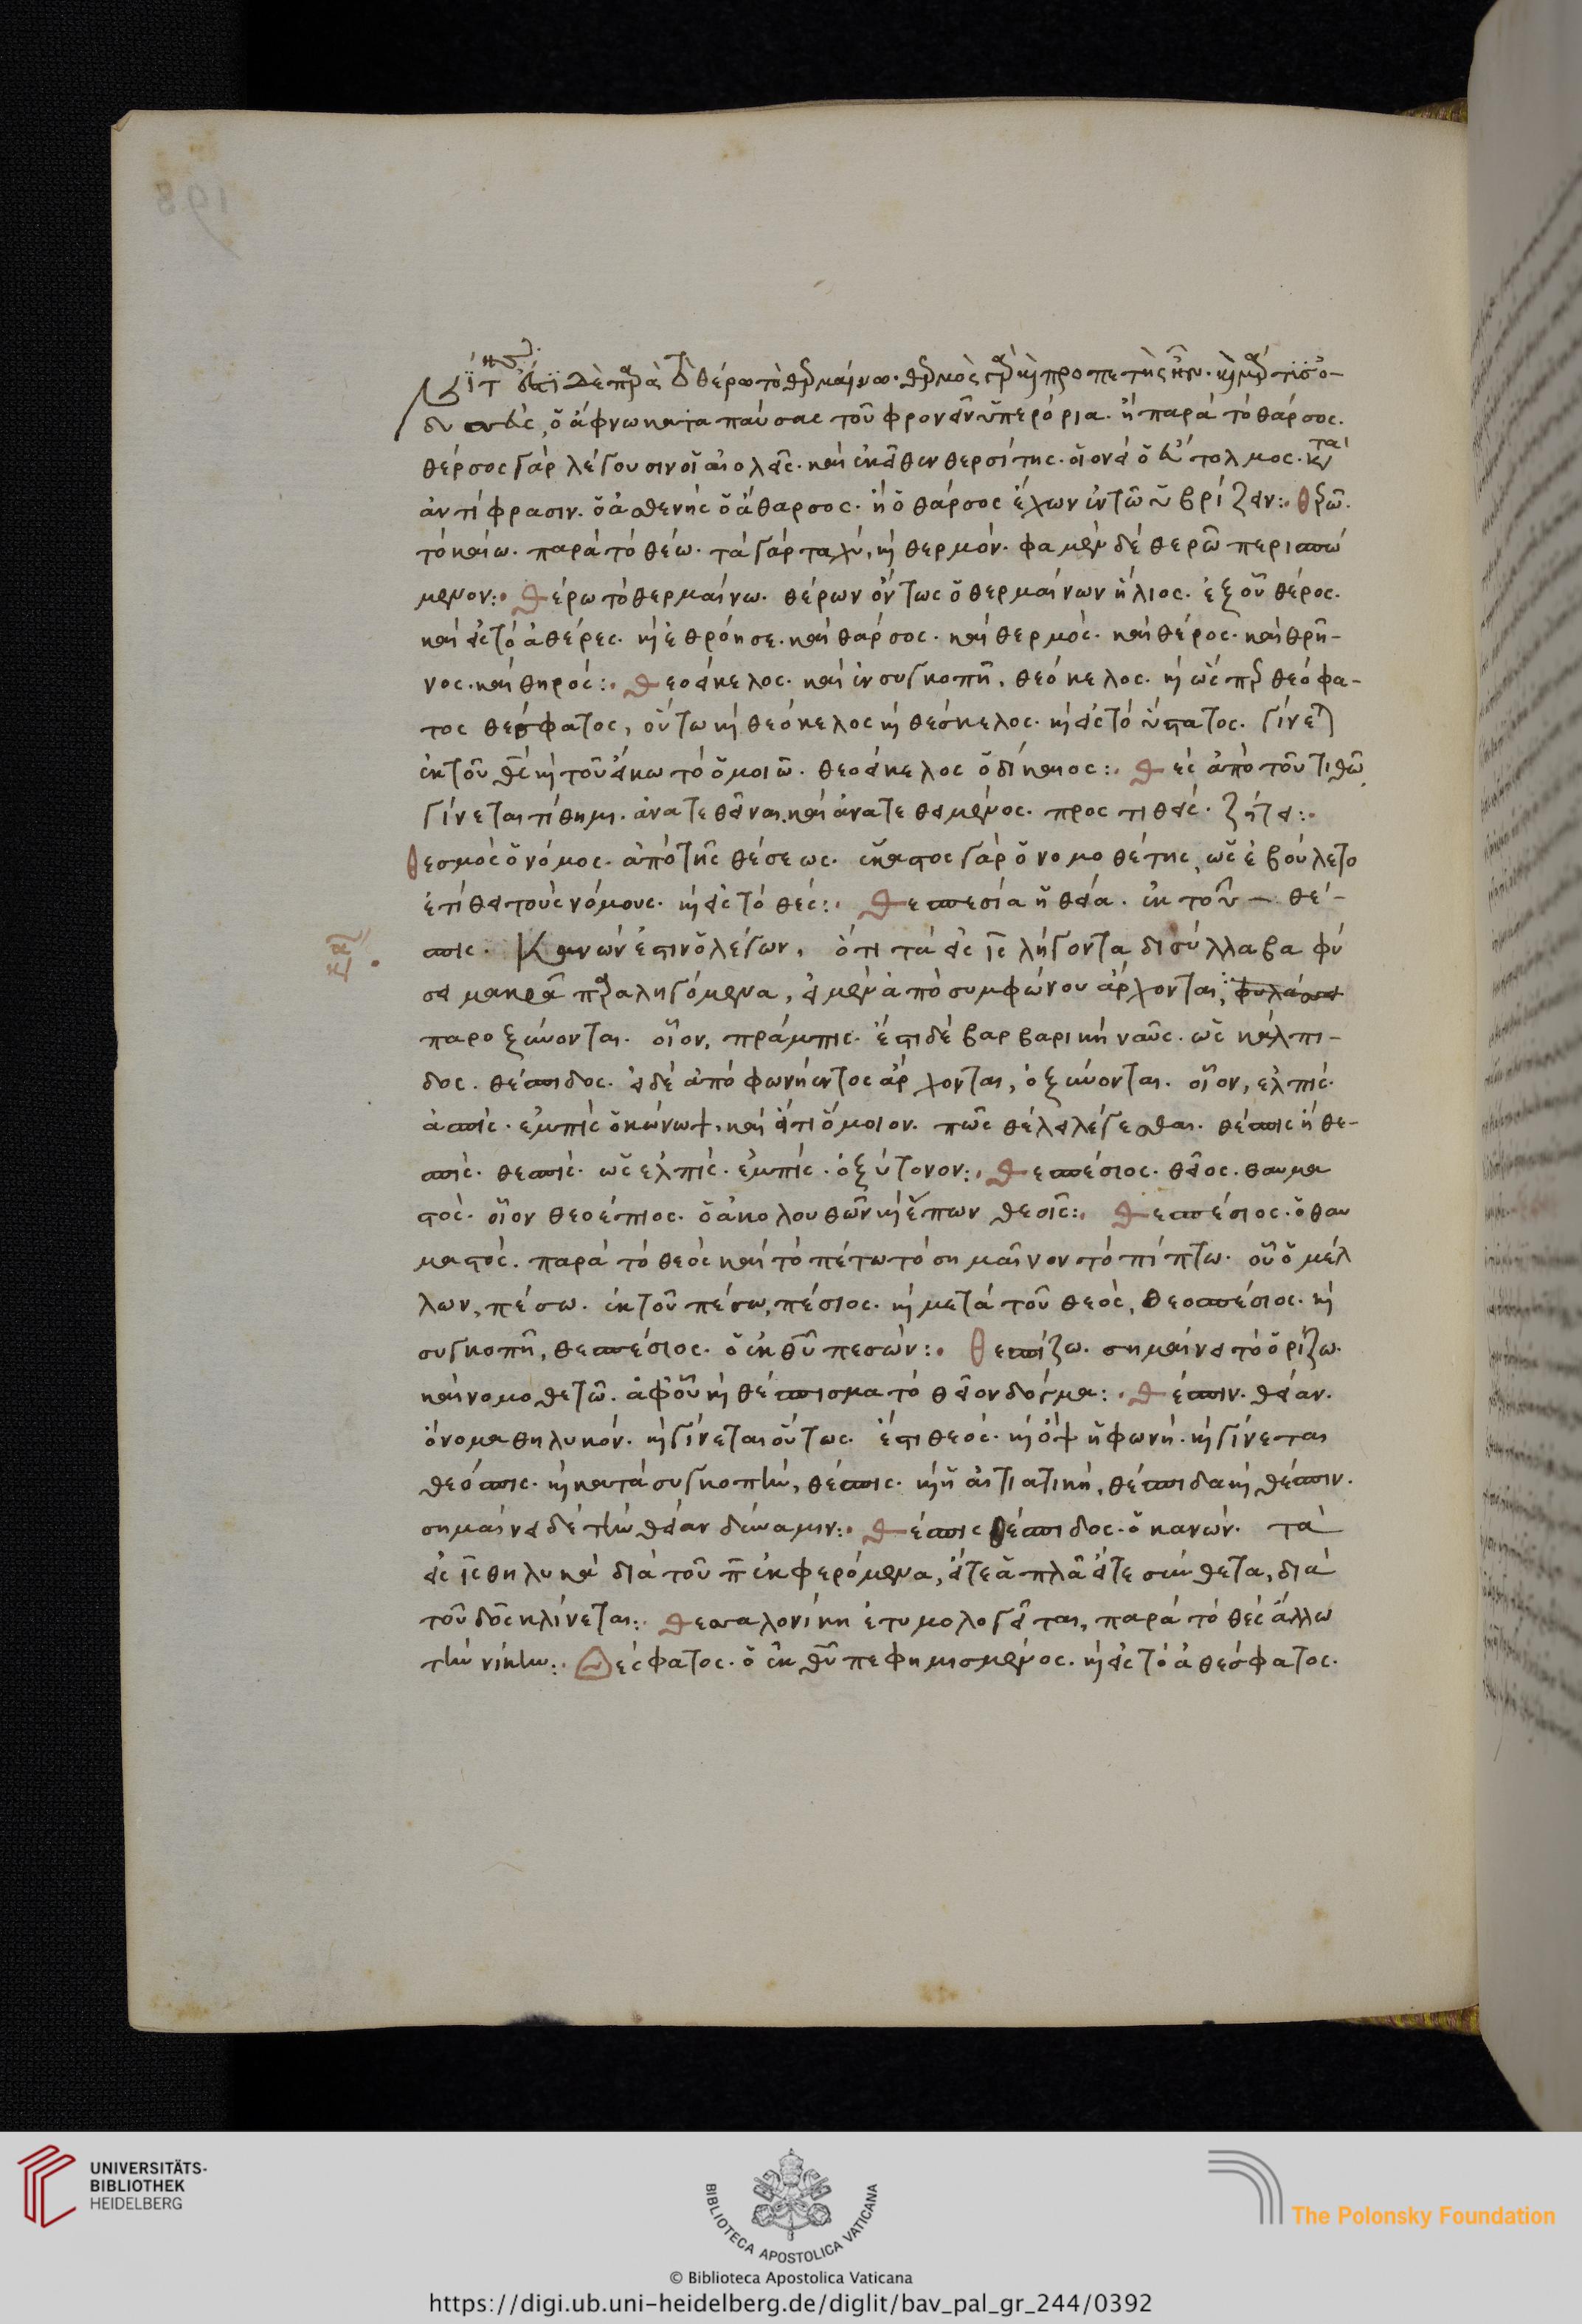 δὲ παρὰ τὸ θέρω τὸ θερμαίνω· θερμὸς γὰρ καὶ προπετὴς ἦν. καὶ
ὁ ἄφνω καταπαύσας τοῦ φρονεῖν ὑπερόρια. ἢ παρὰ τὸ θάρσος.
θέρσος γὰρ λέγουσιν οἱ αἰολεῖς. καὶ ἐκεῖθεν θερσίτης. οἱονεὶ ὁ εὔτολμος. κατὰ
ἀντίφρασιν. ὁ ἀσθενὴς ὁ ἄθαρσος. ἢ ὁ θάρσος ἔχων ἐν τῶ ὑβρίζειν:· θερῶ.
τὸ καίω. παρὰ τὸ θέω. τὰ γὰρ ταχὺ, καὶ θερμόν. φαμὲν δὲ θερῶ περισπώ
μενον:· Θέρω τὸ θερμαίνω. θέρων ὄντως ὁ θερμαίνων ἥλιος. ἐξ οὗ θέρος.
καὶ εἰς τὸ ἀθέρες. καὶ ἐθρόησε. καὶ θάρσος. καὶ θερμός. καὶ θέρος. καὶ θρῆ-
νος. καὶ θηρός:· Θεοείκελος. καὶ ἐν συγκοπῆ, θεόκελος. καὶ ὥσπερ θεόφα-
τος θέσφατος, οὕτω καὶ θεόκελος καὶ θέσκελος. καὶ εἰς τὸ ὕπατος. γίνεται
ἐκ τοῦ θεὸς καὶ τοῦ εἴκω τὸ ὁμοιῶ. θεοείκελος ὁ δίκαιος:· Θὲς ἀπὸ τοῦ τιθῶ
γίνεται τίθημι. ἀνατεθεῖναι. καὶ ἀνατεθειμένος. προστιθεὶς. ζήτει:·
θεσμὸς ὁ νόμος. ἀπὸ τῆς θέσεως. ἕκαστος γὰρ ὁ νομοθέτης, ὡς ἐβούλετο
ἐτίθει τοὺς νόμους. καὶ εἰς τὸ θές:· Θεσπεσία ἡ θεία. ἐκ τοῦ – θέ-
σπις. Κανών ἐστιν ὁ λέγων, ὅτι τὰ εἰς ις λήγοντα δισύλλαβα φύ
σει μακρᾶ παραληγόμενα, εἰ μὲν ἀπὸ συμφώνου ἄρχονται,
παροξύνονται. οἷον, πράμπις. ἔστι δὲ βαρβαρικὴ ναῦς. ὡς κάλπι-
δος. θέσπιδος. εἰ δὲ ἀπὸ φωνήεντος ἄρχονται, ὀξύνονται. οἷον, ἐλπίς.
ἀσπίς. ἐμπὶς ὁ κώνωψ, καὶ εἴ τι ὅμοιον. πῶς θέλει λέγεσθαι. θέσπις ἢ θε-
σπίς. θεσπίς. ὡς ἐλπίς. ἐμπίς. ὀξύτονον:· Θεσπέσιος. θεῖος. θαυμα
στός. οἷον θεοέπιος. ὁ ἀκολουθῶν καὶ ἕπων θεοῖς:· Θεσπέσιος. ὁ θαυ
μαστός. παρὰ τὸ θεὸς καὶ τὸ πέτω τὸ σημαῖνον τὸ πίπτω. οὗ ὁ μέλ
λων, πέσω. ἐκ τοῦ πέσω, πέσιος. καὶ μετὰ τοῦ θεὸς, θεοσπέσιος. καὶ
συγκοπῆ, θεσπέσιος. ὁ ἐκ θεοῦ πεσών:· θεσπίζω. σημαίνει τὸ ὁρίζω.
καὶ νομοθετῶ. ἀφ' οὗ καὶ θέσπισμα τὸ θεῖον δόγμα:· Θέσπιν. θείαν.
ὄνομα θηλυκόν. καὶ γίνεται οὕτως. ἔστι θεός. καὶ ὂψ ἡ φωνή. καὶ γίνεται
θεόσπις. καὶ κατὰ συγκοπὴν, θέσπις. καὶ ἡ αἰτιατική, θέσπιδα καὶ θέσπιν.
σημαίνει δὲ τὴν θείαν δύναμιν:· Θέσπις θέσπιδος. ὁ κανών. τὰ
εἰς ις θηλυκὰ διὰ τοῦ π ἐκφερόμενα, εἴτε ἁπλᾶ εἴτε σύνθετα, διὰ
τοῦ δος κλίνεται:· Θεσσαλονίκη ἐτυμολογεῖται, παρὰ τὸ θὲς ἄλλω
τὴν νίκην:· Θέσφατος. ὁ ἐκ θεοῦ πεφημισμένος. καὶ εἰς τὸ ἀθέσφατος.
UNIVERSITÄTS-
BIBLIOTHEK
HEIDELBERG
BIBLIOTECA APOSTOLICA VATICANA
The Polonsky Foundation
© Biblioteca Apostolica Vaticana
https://digi.ub.uni-heidelberg.de/diglit/bav_pal_gr_244/0392